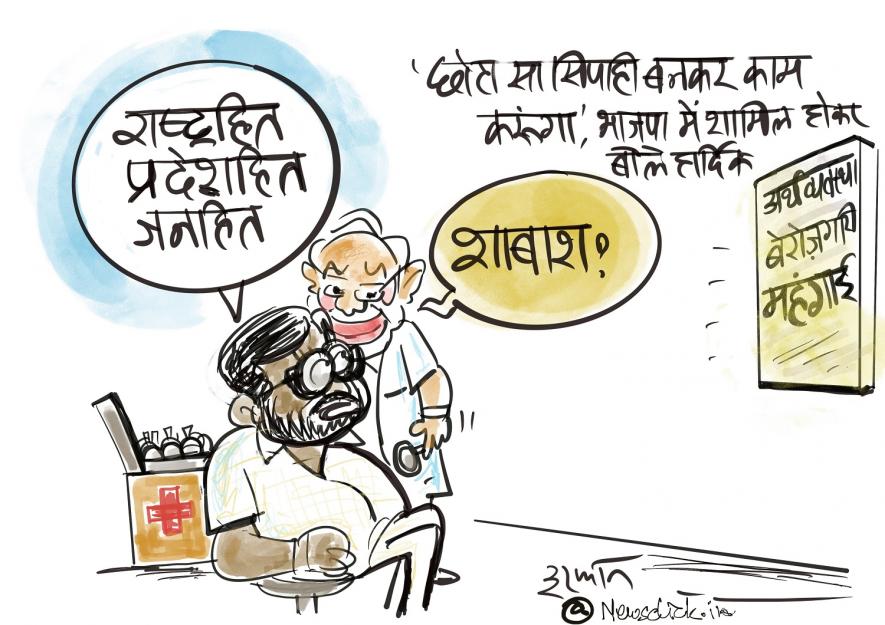 राष्ट्रहित
प्रदेशहित
जनहित
'छोटा सा सिपाही बनकर काम
करूंगा', भाजपा में शामिल होकर
बोले हार्दिक
शाबाश?
अर्थव्यवस्था
बेरोज़गारी
महंगाई
इरफ़ान
@ Newsclick.in